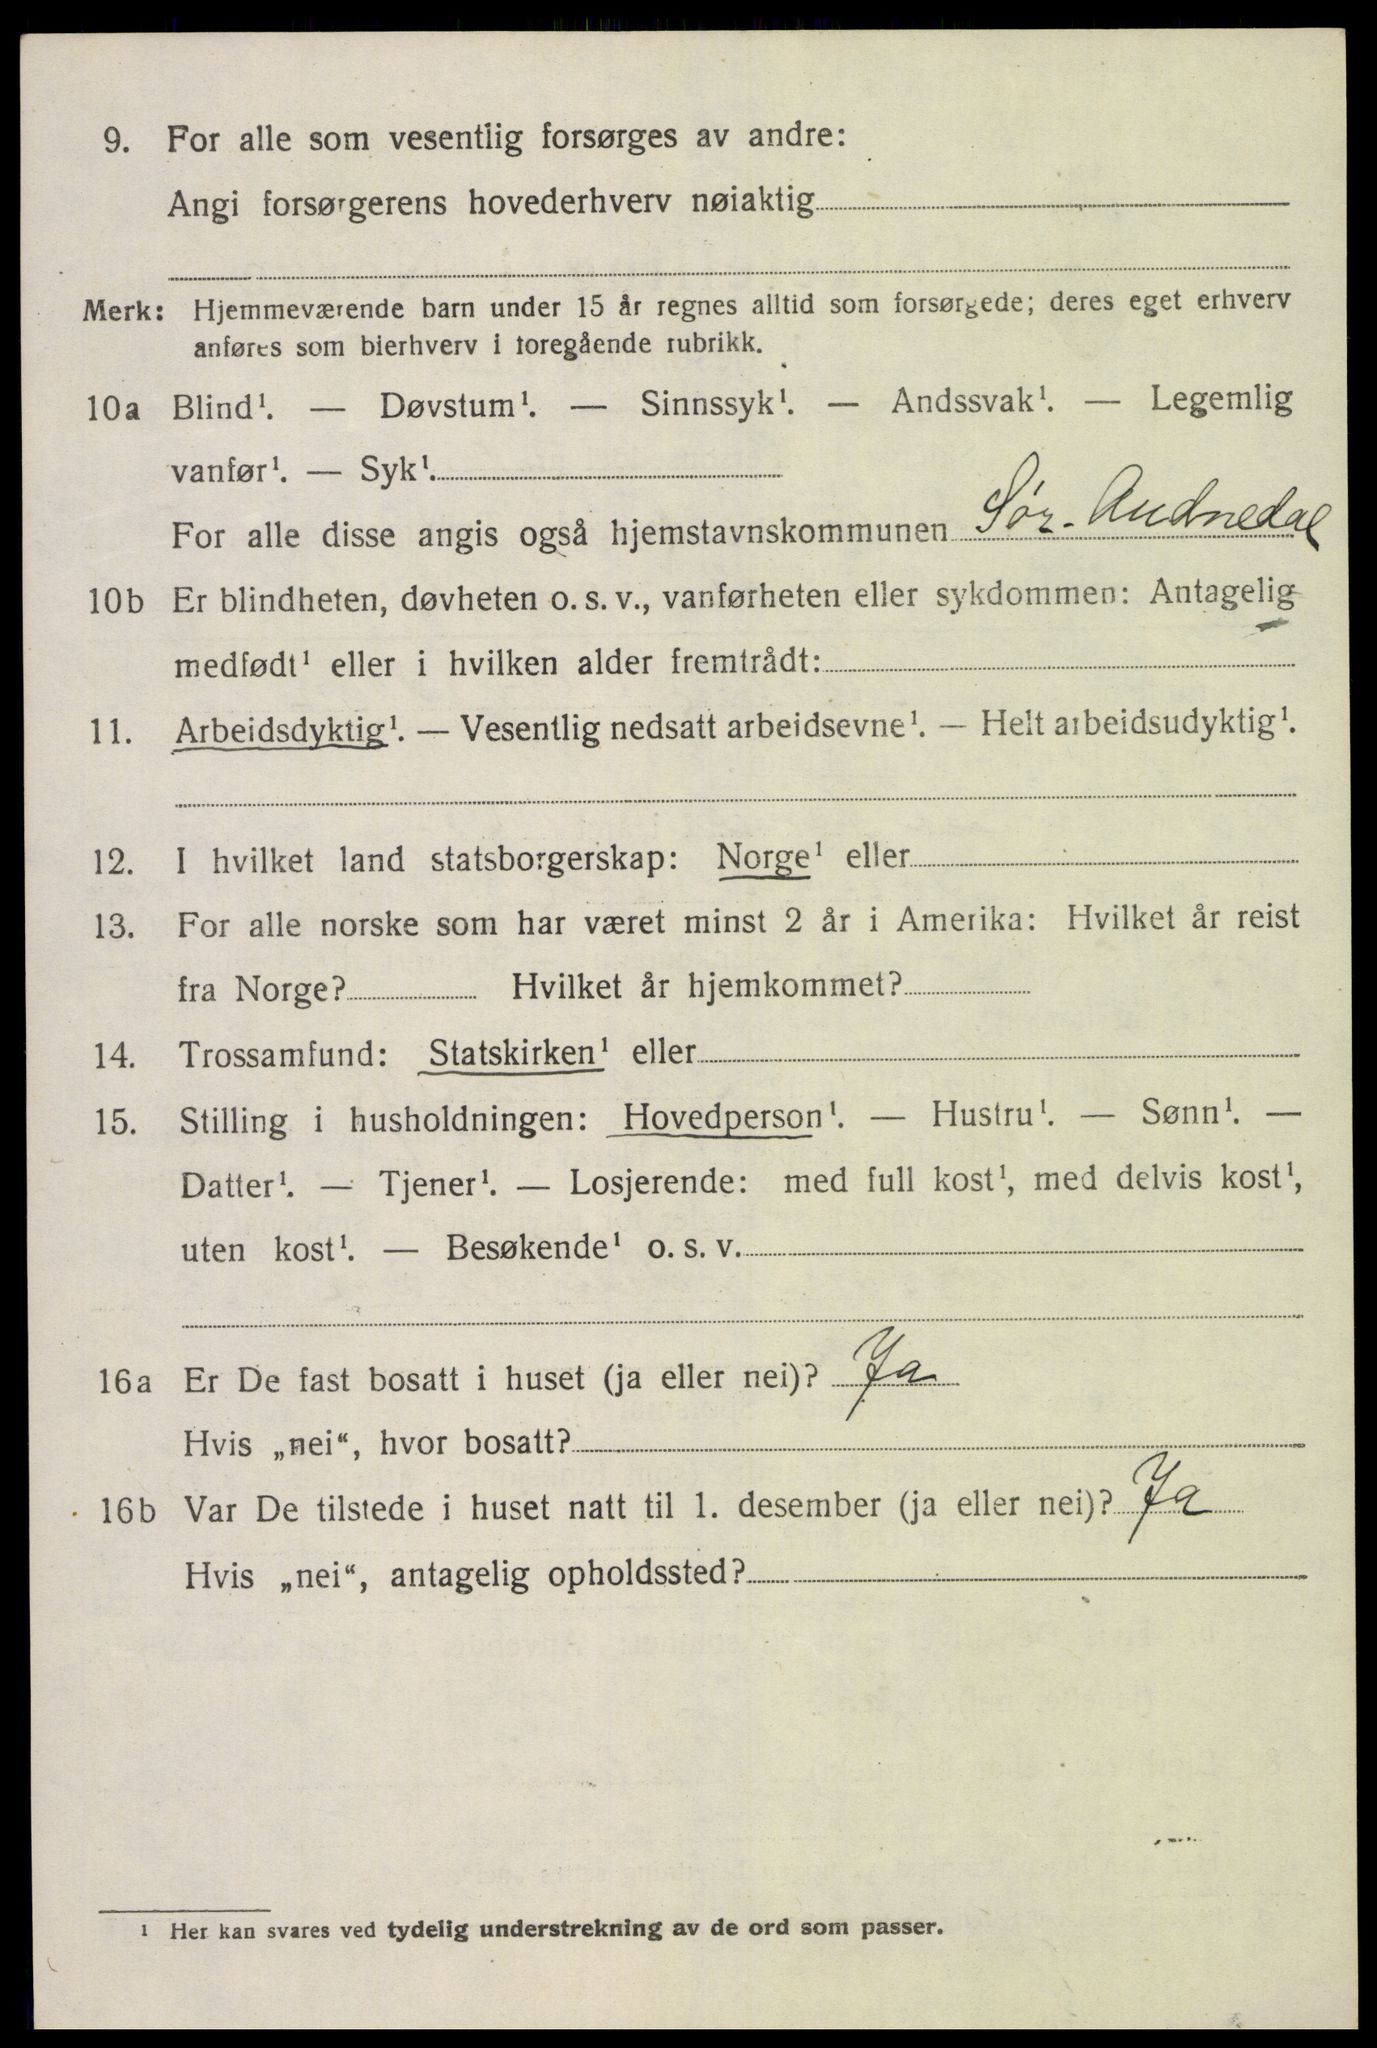 9. For alle som vesentlig forsørges av andre:
Angi forsørgerens hovederhverv nøiaktig
Merk: Hjemmeværende barn under 15 år regnes alltid som forsørgede; deres eget erhverv
anføres som bierhverv i foregående rubrikk.
10a Blind¹. — Døvstum¹. — Sinnssyk¹. — Åndssvak¹. — Legemlig
vanfør¹. — Syk¹.
For alle disse angis også hjemstavnskommunen Sør-Audnedal
10b Er blindheten, døvheten o. s. v., vanførheten eller sykdommen: Antagelig
medfødt¹ eller i hvilken alder fremtrådt:
11. Arbeidsdyktig¹. — Vesentlig nedsatt arbeidsevne¹. — Helt arbeidsudyktig¹.
12. I hvilket land statsborgerskap: Norge¹ eller
13. For alle norske som har været minst 2 år i Amerika: Hvilket år reist
fra Norge? Hvilket år hjemkommet?
14. Trossamfund: Statskirken¹ eller
15. Stilling i husholdningen: Hovedperson¹. — Hustru¹. — Sønn¹. —
Datter¹. — Tjener¹. — Losjerende: med full kost¹, med delvis kost¹,
uten kost¹. — Besøkende¹ o. s. v.
16a Er De fast bosatt i huset (ja eller nei)? Ja
Hvis „nei“, hvor bosatt?
16b Var De tilstede i huset natt til 1. desember (ja eller nei)? Ja
Hvis „nei“, antagelig opholdssted?
¹ Her kan svares ved tydelig understrekning av de ord som passer.